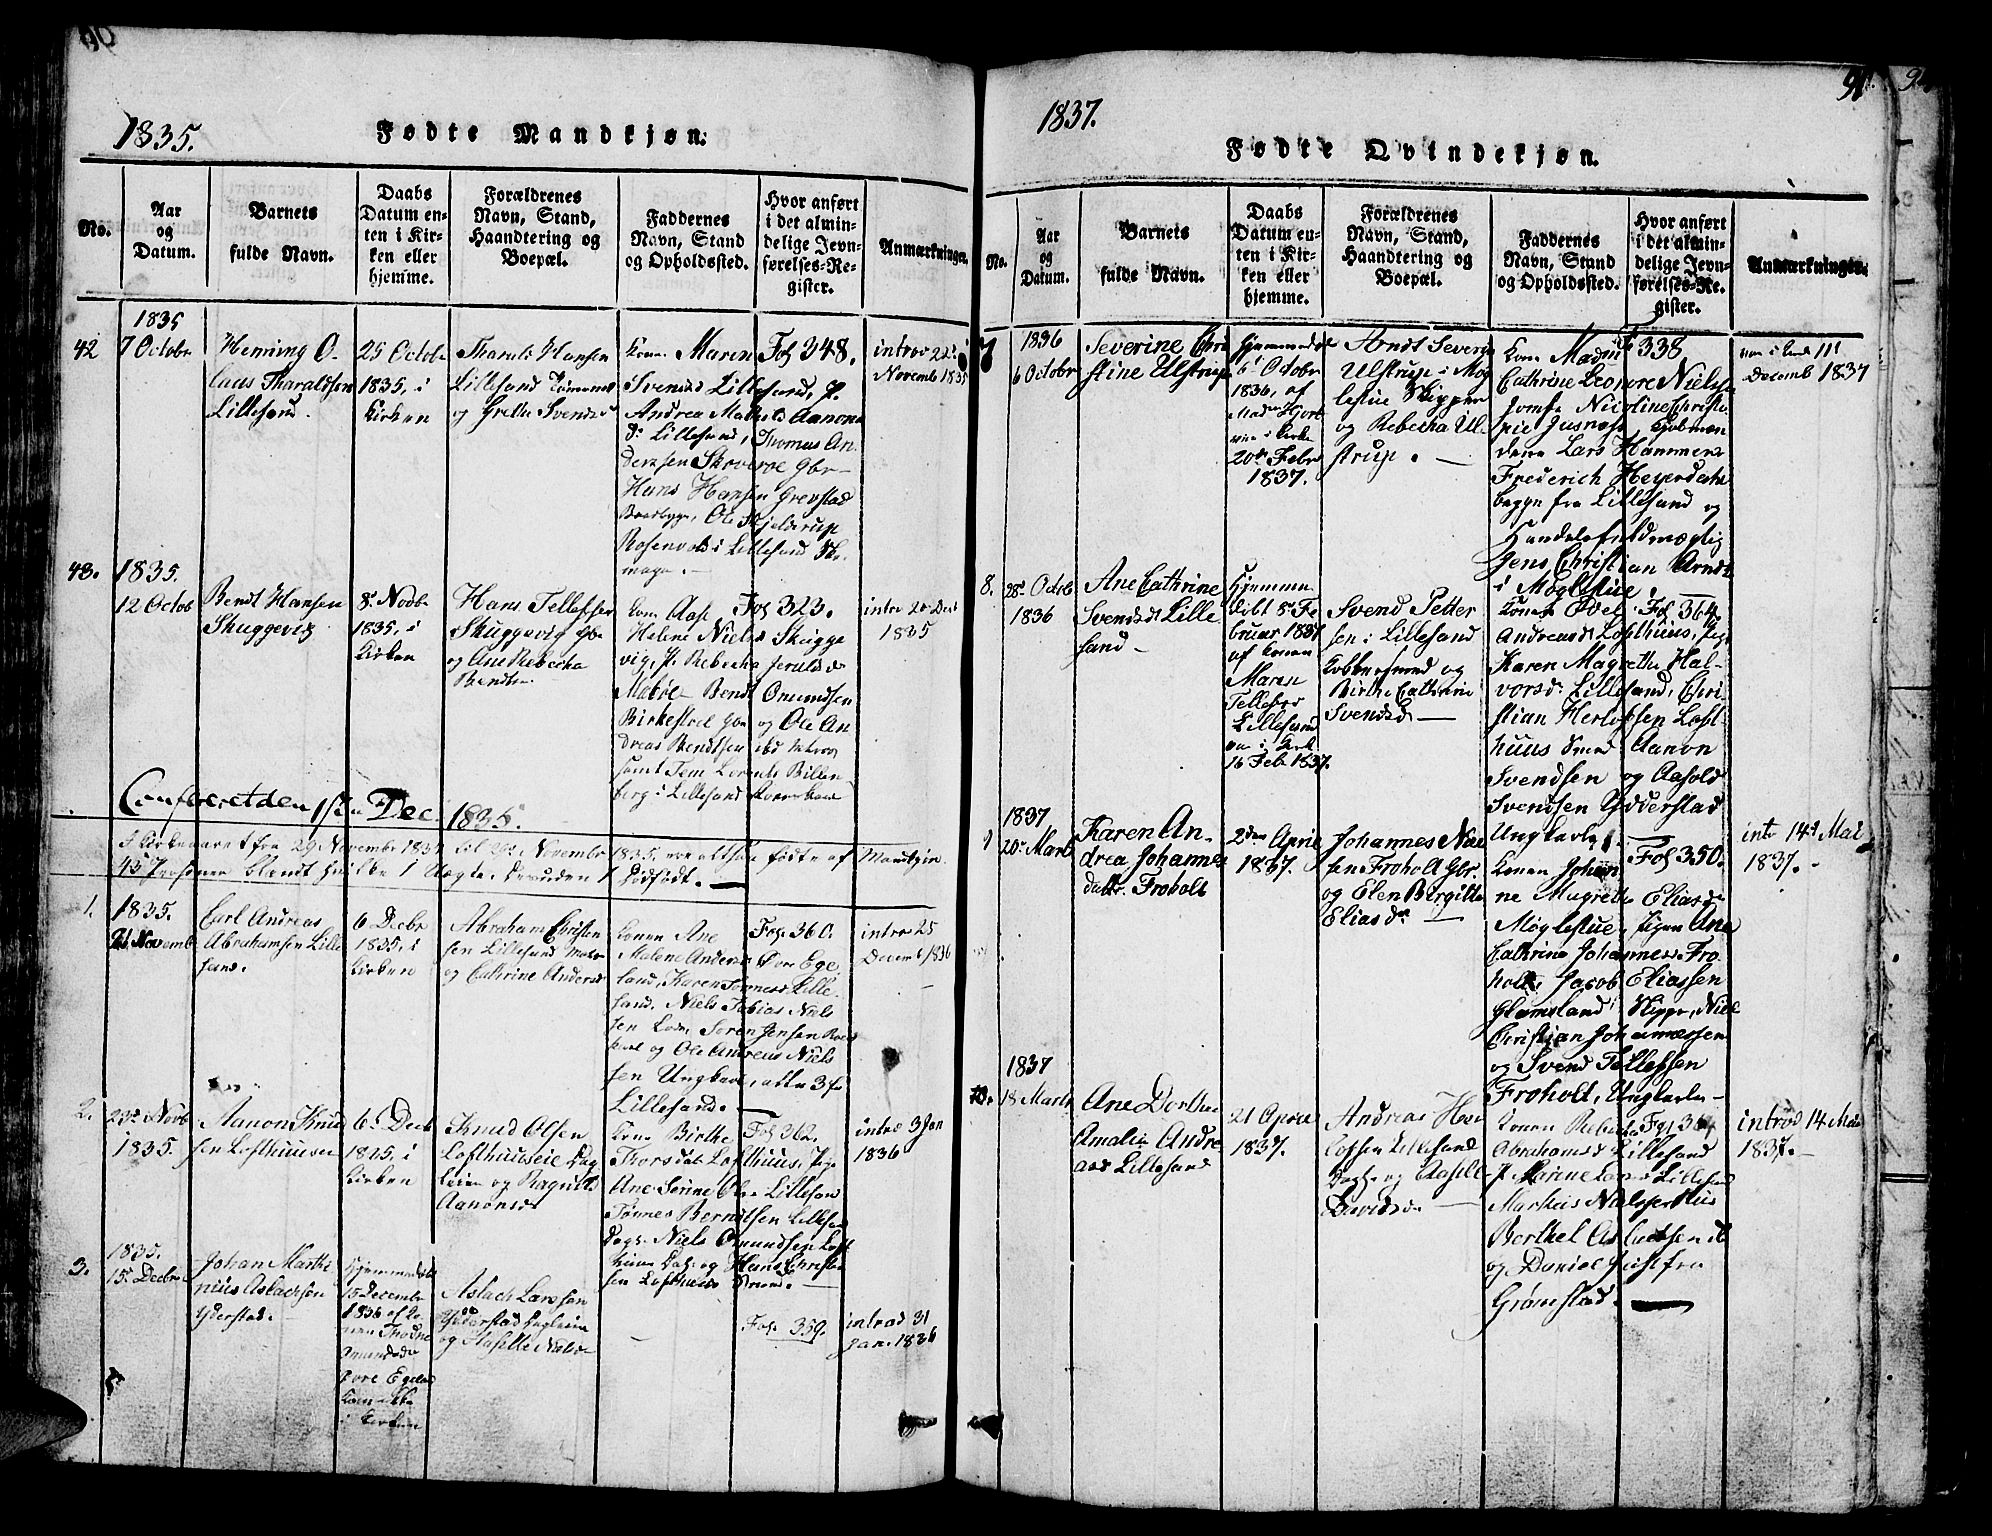 1835.
Fødte Mandkjøn.
No.
Aar
og
Datum.
Barnets
fulde Navn.
Daabs
Datum en-
ten i Kir-
ken eller
hjemme.
Forældrenes
Navn, Stand,
Haandtering og
Boepæl.
Faddernes
Navn, Stand
og Opholdssted.
Hvor anført
i det almin-
delige Jevn-
førelses-Re-
gister.
Anmærkninger.
42
1835
7 Octobr
Henning O-
laus Tharaldsen
Lillesand.
25 Octobr
1835, i
Kirken
Tharald Hansen
Lillesand
og Grethe Svendsd
Kone Maren
Svendsd Lillesand, P.
Andrea Aanons
d: Lillesand, Thomas An
dersen Skoveroe Gbr
Hans Hansen Grevstad
Ole Hjelderup
Rosenvold i Lillesand
Fol 348.
introd 22
Novemb 1835
43.
1835.
12 Octob
Bendt Hansen
Skuggevig
8 Novbr
1835, i
Kirken
Hans Tellefsen
Skuggevig Gbr
og Ane Rebecha
Bendtsd
Kone Aase
Helene Nielsd Skugge
vig, P. Rebecha
Bendt Omundsen
Birkestoel Gbr og Ole An
dreas Bendtsen
samt Lorents Billen
berg i Lillesand
Fol 323.
intro 20 Decb
1835
Confereret den 1ste Dec. 1835.
I Kirkeaaret fra 29 Novembr 1834 til 29 Novembr 1835. ere altsaa fødte af Mandkjøn
43 Personer blandt hvilke 1 Uægte. Desuden 1 Dødfødt.
1.
1835.
21 Novemb
Carl Andreas
Abrahamsen Lille
sand.
6 Decbr
1835, i
Kirken
Abraham Christen
sen Lillesand
og Cathrine Andersd
Konen Ane
Malene Andersd Ege
land, Karen Tønnesd Lille
sand, Niels Tobias Niels
sen Søren Jensen
og Ole Andreas Niels
sen Ungkarle, alle 3 fra
Lillesand.
Fol. 360.
introd 25
Decemb 1836
2.
23d Novb
1835.
Aanon Knud
sen Lofthuuseie
6 Decb
1835, i
Kirken
Knud Olsen
Lofthuuseie Dag
leier og Ragnild
Aanonsd
Kone Birthe
Thorsdatr Lofthuus, Pige
Ane Serine Olsd Lillesand
Tønnes Berndtsen Lillesand
Dagl. Niels Omundsen Loft
huus og Hans Christen
sen Lofthuus
Fol 362.
introd 3 Jan
1836
3.
1835.
15 Decbr
Johan Marthi
nius Aslachsen
Yderstad.
Hjemmedøbt
15 Decembr
1836 af Ko
nen Thodne
Omundsdr
øvre Egeland
Kom ikke
i Kirken
Aslach Larssen
Yderstad Dagleier
og Aaselle Nielsd
Fol. 359.
introd 31
Jan. 1836
91.
1837.
Fødte Qvindekjøn.
No.
Aar
og
Datum.
Barnets
fulde Navn.
Daabs
Datum en-
ten i Kir-
ken eller
hjemme.
Forældrenes
Navn, Stand,
Haandtering og
Boepæl.
Faddernes
Navn, Stand
og Opholdssted.
Hvor anført
i det almin-
delige Jevn-
førelses-Re-
gister.
Anmærkninger.
7
1836
6 Octobr
Severine Chri
stine Ulstrup
Hjemmedøbt
6 Octobr
1836, af
Madm Hjort
var i Kirke
20de Febr
1837.
Arndt Severin
Ulstrup i Møg
lestue Skipper
og Rebecha Ul-
strup.
Kone Madm
Cathrine Leonore Nielssen
Jomfr Nicoline Christi
Kjøbmæn
dene Lars Hammer
Frederich Heyerdahl
begge fra Lillesand og
Handelsfuldmægtig
Jens Christian Arndt
i Møglestue.
338
Decemb 1837
8.
28 Octob
1836
Ane Cathrine
Svendsdr Lille
sand
Hjemme
døbt 5 Fe
bruar 1837
af Konen
Maren
Tellefsd
Lillesand
var i Kirk
16 Feb. 1837.
Svend Petter
sen i Lillesand
Kobbersmed og
Birthe Cathrine
Svendsd
Konen Odel
Andreasd Lofthuus, Pige
Karen Magrethe Hal-
vorsd: Lillesand, Chri
stian Herlofsen Loft
huus Aanon
Svendsen og Aasold
Svendsen Ydderstad
Ungkarle.
Fol 364.
9
1837
20 Martz
Karen An-
drea Johannes
datter Froholt
2den April
1837.
Johannes Niel
sen Froholt Gbr.
og Elen Bergitte
Eliasdr
Konen Johan
ne Magrethe Eliasdr
Møglestue, Pigen Ane
Cathrine Johannesd Fro
holt, Jacob Eliassen
Glamsland Skipper, Niels
Christjan Johannessen
og Svend Tellefsen
Froholt, Ungkarle
Fol 350.
intr 14d Mai
1837.
10.
1837
18 Martz
Ane Dorthea
Amalia Andre
asd Lillesand
21 April
1837.
Andreas Her
lofsen Lillesand
Dagl. og Aaselle
Davidsd
Konen Rebecha
Abrahamsd Lillesand
P. Marine Larsd Lillesand
Markus Nielssen
Berthel Aslachsen
og Daniel fra
Grømestad.
Fol 364
introd 14 Mai
1837.